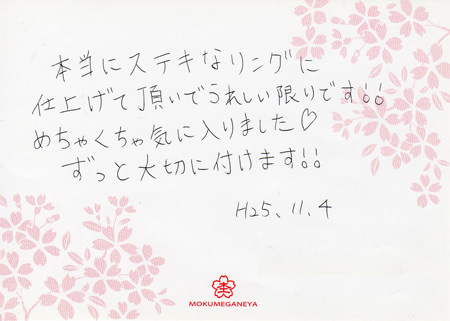 本当にステキなリングに
仕上げて頂いてうれしい限りです!!
めちゃくちゃ気に入りました♡
ずっと大切に付けます!!
H25.11.4
MOKUMEGANEYA